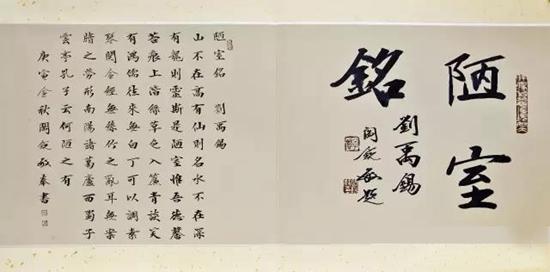 陋室
銘
劉禹錫
閻銳敏題
陋室銘 劉禹錫
山不在高有仙則名水不在深
有龍則靈斯是陋室惟吾德馨
苔痕上階綠草色入簾青談笑
有鴻儒往來無白丁可以調素
琴閱金經無絲竹之亂耳無案
牘之勞形南陽諸葛廬西蜀子
雲亭孔子云何陋之有
庚寅金秋閻銳敏奉書